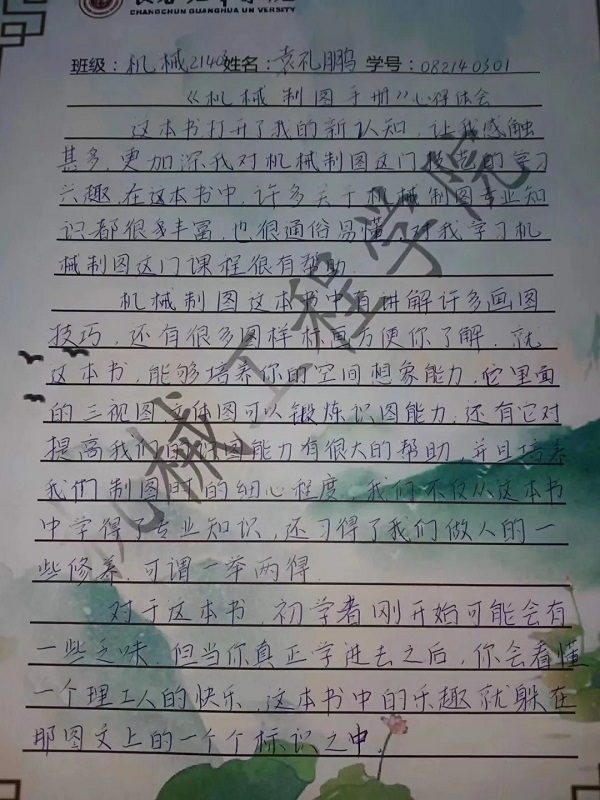 CHANGCHUN GUANGHUA UNIVERSITY
班级：机械2140 姓名：袁孔鹏 学号：082140301
《机械制图手册》心得体会
这本书打开了我的新认知，让我感触
甚多，更加深我对机械制图这门技艺的学习
兴趣，在这本书中，许多关于机械制图专业知
识都很多丰富，也很通俗易懂，对我学习机
械制图这门课程很有帮助.
机械制图这本书中有讲解许多画图
技巧，还有很多图样标画方便你了解，就
这本书，能够培养你的空间想象能力，它里面
的三视图，立体图可以锻炼识图能力，还有它对
提高我们的识图能力有很大的帮助，并且培养
我们制图时的细心程度，我们不仅从这本书
中学得了专业知识，还习得了我们做人的一
些修养，可谓一举两得.
对于这本书，初学者刚开始可能会有
一些乏味，但当你真正学进去之后，你会看懂
一个理工人的快乐，这本书中的乐趣就躲在
那图文上的一个个标识之中。
机械工程学院